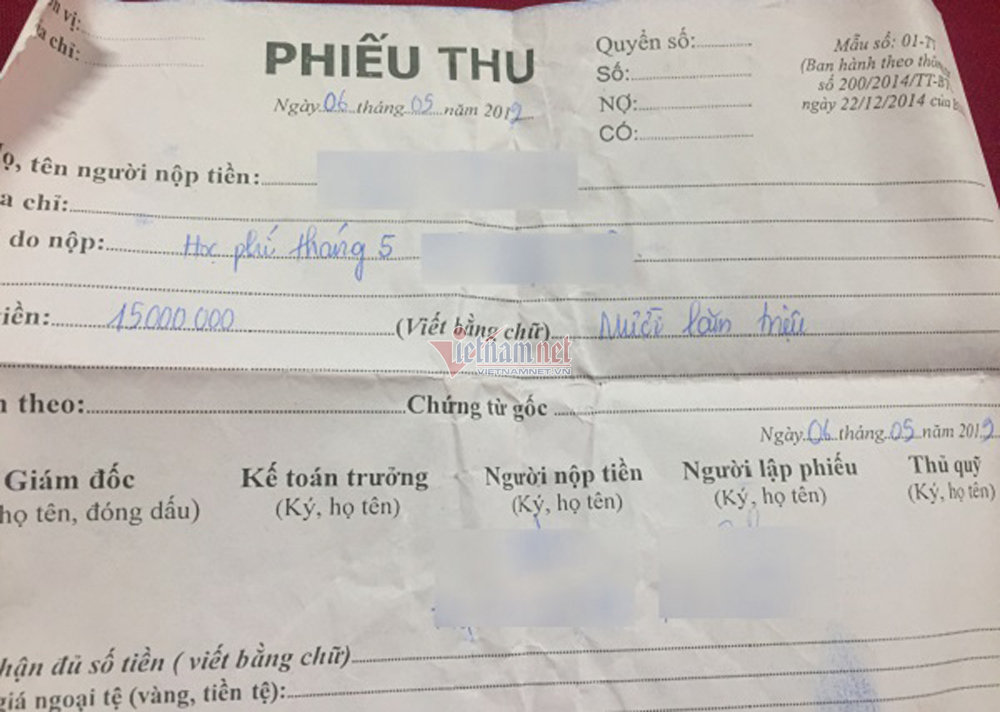 n vị:
ịa chỉ:
PHIẾU THU
Ngày 06 tháng 05 năm 2019
Quyển số:
Số:
NỢ:
CÓ:
Mẫu số: 01-T
(Ban hành theo thông
số 200/2014/TT-B
ngày 22/12/2014 của B
Họ, tên người nộp tiền:
a chỉ:
do nộp: Học phí tháng 5
iền: 15.000.000 (Viết bằng chữ) Mười lăm triệu
vietnamnet
VIETNAMNET.VN
n theo: Chứng từ gốc
Ngày 06 tháng 05 năm 2019
Giám đốc Kế toán trưởng Người nộp tiền Người lập phiếu Thủ quỹ
họ tên, đóng dấu) (Ký, họ tên) (Ký, họ tên) (Ký, họ tên) (Ký, họ tên)
hận đủ số tiền ( viết bằng chữ)
giá ngoại tệ (vàng, tiền tệ):